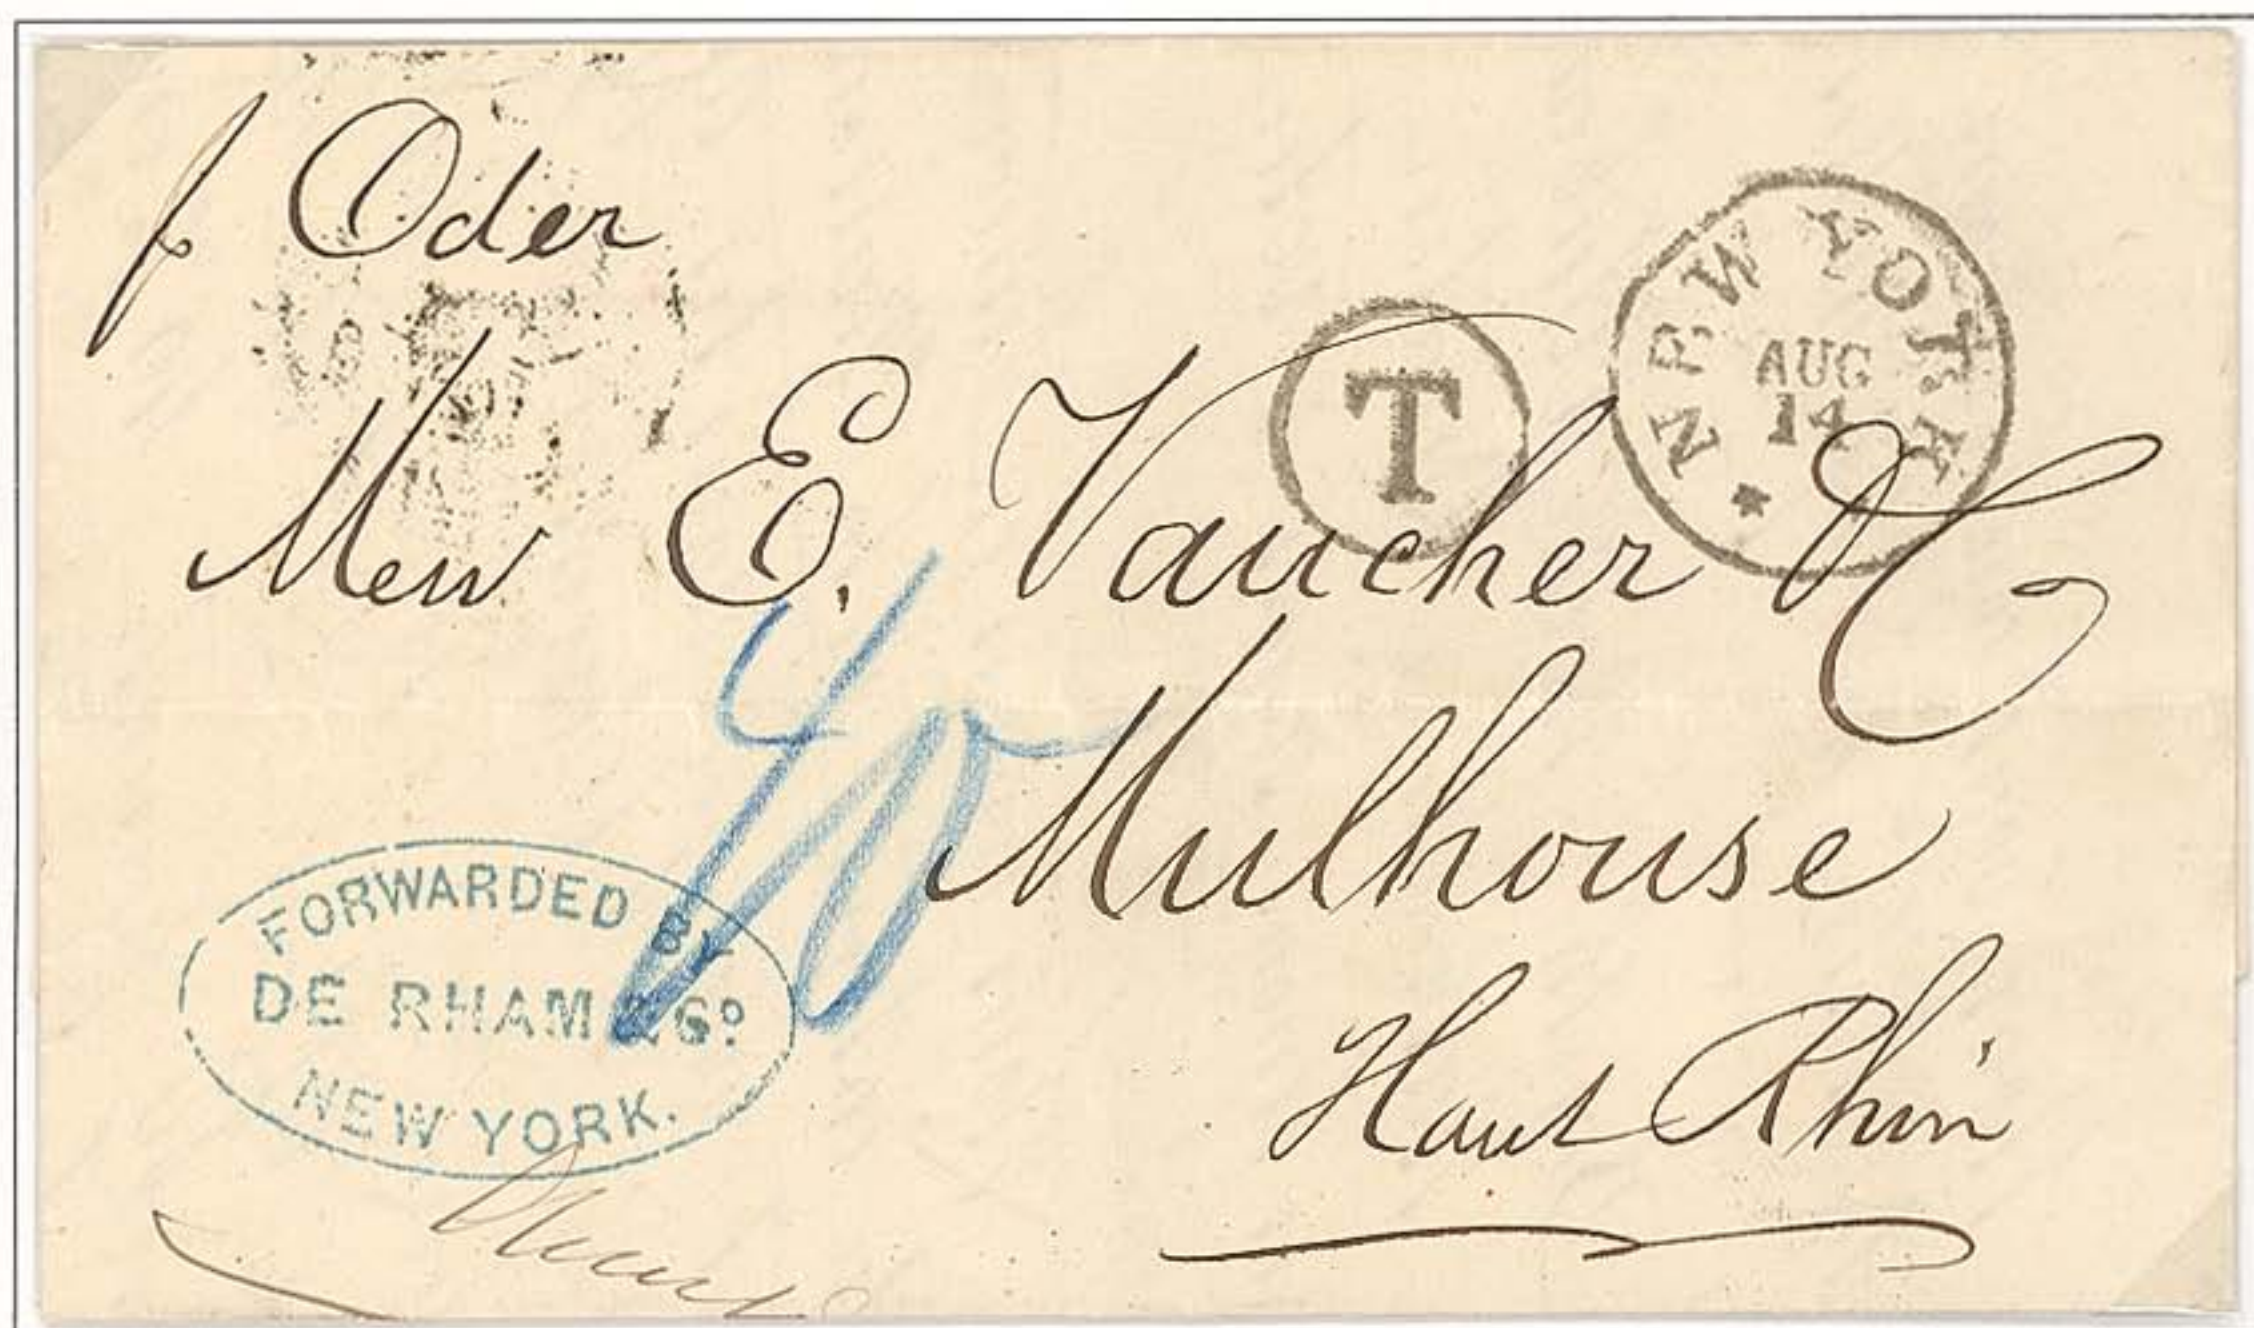 p Oder
NEW YORK
AUG
14
T
Mess E. Vaucher & C
40
Mulhouse
Haut Rhin
FORWARDED BY
DE RHAM & Co.
NEW YORK.